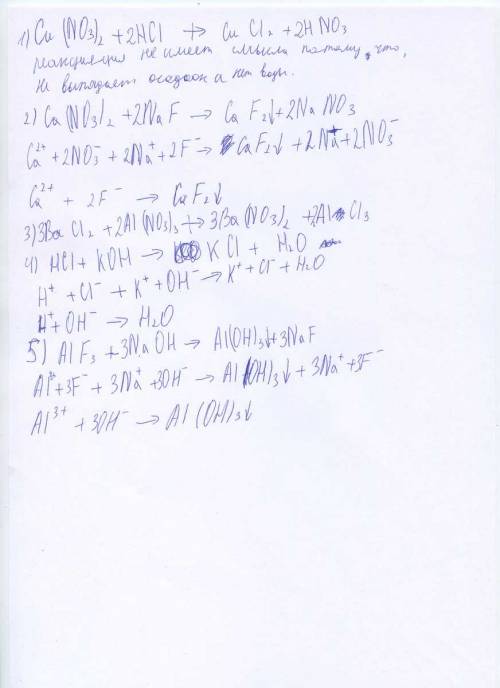 1) Cu(NO₃)₂ + 2HCl ↛ CuCl₂ + 2HNO₃
реакция не имеет смысла потому, что,
не выпадает осадок и нет воды.
2) Ca(NO₃)₂ + 2NaF → CaF₂↓ + 2NaNO₃
Ca²⁺ + 2NO₃⁻ + 2Na⁺ + 2F⁻ → CaF₂↓ + 2Na⁺ + 2NO₃⁻
Ca²⁺ + 2F⁻ → CaF₂↓
3) 3BaCl₂ + 2Al(NO₃)₃ ↛ 3Ba(NO₃)₂ + 2AlCl₃
4) HCl + KOH → KCl + H₂O
H⁺ + Cl⁻ + K⁺ + OH⁻ → K⁺ + Cl⁻ + H₂O
H⁺ + OH⁻ → H₂O
5) AlF₃ + 3NaOH → Al(OH)₃↓ + 3NaF
Al³⁺ + 3F⁻ + 3Na⁺ + 3OH⁻ → Al(OH)₃↓ + 3Na⁺ + 3F⁻
Al³⁺ + 3OH⁻ → Al(OH)₃↓